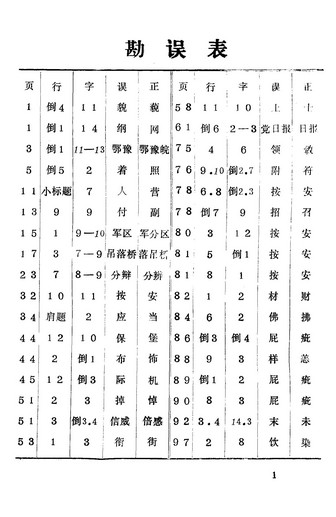 勘误表
页 行 字 误 正 页 行 字 误 正
1 倒4 11 貌 藐 58 11 10 上 士
1 倒1 14 纲 网 61 倒6 2—3 党日报 日报
3 倒1 11—13 鄂豫 鄂豫皖 75 4 6 领
5 倒5 2 着 照 76 9.10 倒2.7 附 符
11 小标题 7 人 营 78 6.8 倒2.3 按 安
13 9 9 付 副 78 倒7 9 招 召
15 1 9—10 军区 军分区 80 3 12 按 安
17 3 7—9 吊落桥 81 5 倒1 按 安
23 7 8—9 分辩 分辨 81 8 2 按 安
32 10 11 按 安 82 1 2 材 财
34 肩题 2 应 当 84 6 2 佛 拂
44 12 10 保 堡 86 倒3 倒4 屁 疵
44 2 倒1 布 怖 88 9 3 样 恙
45 12 倒3 际 机 89 倒1 2 屁 疵
51 2 3 掉 悼 90 8 2 屁 疵
51 3 倒3.4 信威 信感 92 3.4 14.3 末 未
53 1 3 衔 街 97 2 8 饮 染
1